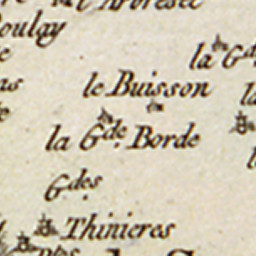 l'Arbresec
oulay
la G.de
le Buisson
la G.de Borde
G.des
Thinieres
P.tes